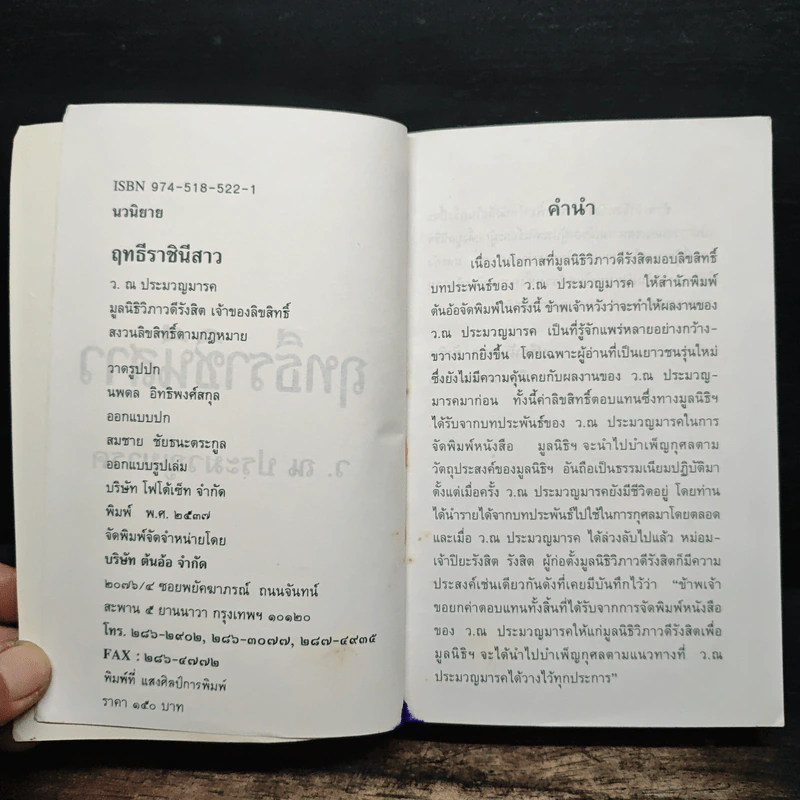 ISBN 974-518-522-1
นวนิยาย
ฤทธีราชินีสาว
ว. ณ ประมวญมารค
มูลนิธิวิภาวดีรังสิต เจ้าของลิขสิทธิ์
สงวนลิขสิทธิ์ตามกฎหมาย
วาดรูปปก
นพดล อิทธิพงศ์สกุล
ออกแบบปก
สมชาย ชัยธนะตระกูล
ออกแบบรูปเล่ม
บริษัท โฟโต้เซ็ท จำกัด
พิมพ์ พ.ศ. ๒๕๓๗
จัดพิมพ์จัดจำหน่ายโดย
บริษัท ต้นอ้อ จำกัด
๒๐๗๖/๔ ซอยพยัคฆาภรณ์ ถนนจันทน์
สะพาน ๕ ยานนาวา กรุงเทพฯ ๑๐๑๒๐
โทร. ๒๘๖-๒๙๐๒, ๒๘๖-๓๐๗๗, ๒๘๗-๔๙๓๕
FAX : ๒๘๖-๔๗๗๒
พิมพ์ที่ แสงศิลป์การพิมพ์
ราคา ๑๕๐ บาท
คำนำ
เนื่องในโอกาสที่มูลนิธิวิภาวดีรังสิตมอบลิขสิทธิ์
บทประพันธ์ของ ว.ณ ประมวญมารค ให้สำนักพิมพ์
ต้นอ้อจัดพิมพ์ในครั้งนี้ ข้าพเจ้าหวังว่าจะทำให้ผลงานของ
ว.ณ ประมวญมารค เป็นที่รู้จักแพร่หลายอย่างกว้าง-
ขวางมากยิ่งขึ้น โดยเฉพาะผู้อ่านที่เป็นเยาวชนรุ่นใหม่
ซึ่งยังไม่มีความคุ้นเคยกับผลงานของ ว.ณ ประมวญ-
มารคมาก่อน ทั้งนี้ค่าลิขสิทธิ์ตอบแทนซึ่งทางมูลนิธิฯ
ได้รับจากบทประพันธ์ของ ว.ณ ประมวญมารคในการ
จัดพิมพ์หนังสือ มูลนิธิฯ จะนำไปบำเพ็ญกุศลตาม
วัตถุประสงค์ของมูลนิธิฯ อันถือเป็นธรรมเนียมปฏิบัติมา
ตั้งแต่เมื่อครั้ง ว.ณ ประมวญมารคยังมีชีวิตอยู่ โดยท่าน
ได้นำรายได้จากบทประพันธ์ไปใช้ในการกุศลมาโดยตลอด
และเมื่อ ว.ณ ประมวญมารค ได้ล่วงลับไปแล้ว หม่อม-
เจ้าปิยะรังสิต รังสิต ผู้ก่อตั้งมูลนิธิวิภาวดีรังสิตก็มีความ
ประสงค์เช่นเดียวกันดังที่เคยมีบันทึกไว้ว่า "ข้าพเจ้า
ขอยกค่าตอบแทนทั้งสิ้นที่ได้รับจากการจัดพิมพ์หนังสือ
ของ ว.ณ ประมวญมารคให้แก่มูลนิธิวิภาวดีรังสิตเพื่อ
มูลนิธิฯ จะได้นำไปบำเพ็ญกุศลตามแนวทางที่ ว.ณ
ประมวญมารคได้วางไว้ทุกประการ"